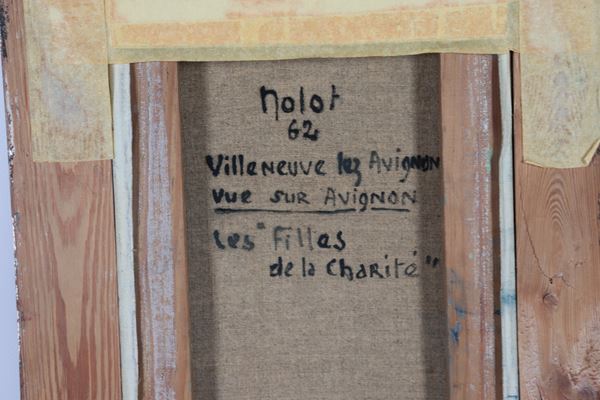 Nolot
62
Villeneuve lez Avignon
Vue sur Avignon
Les "Filles
de la Charité"